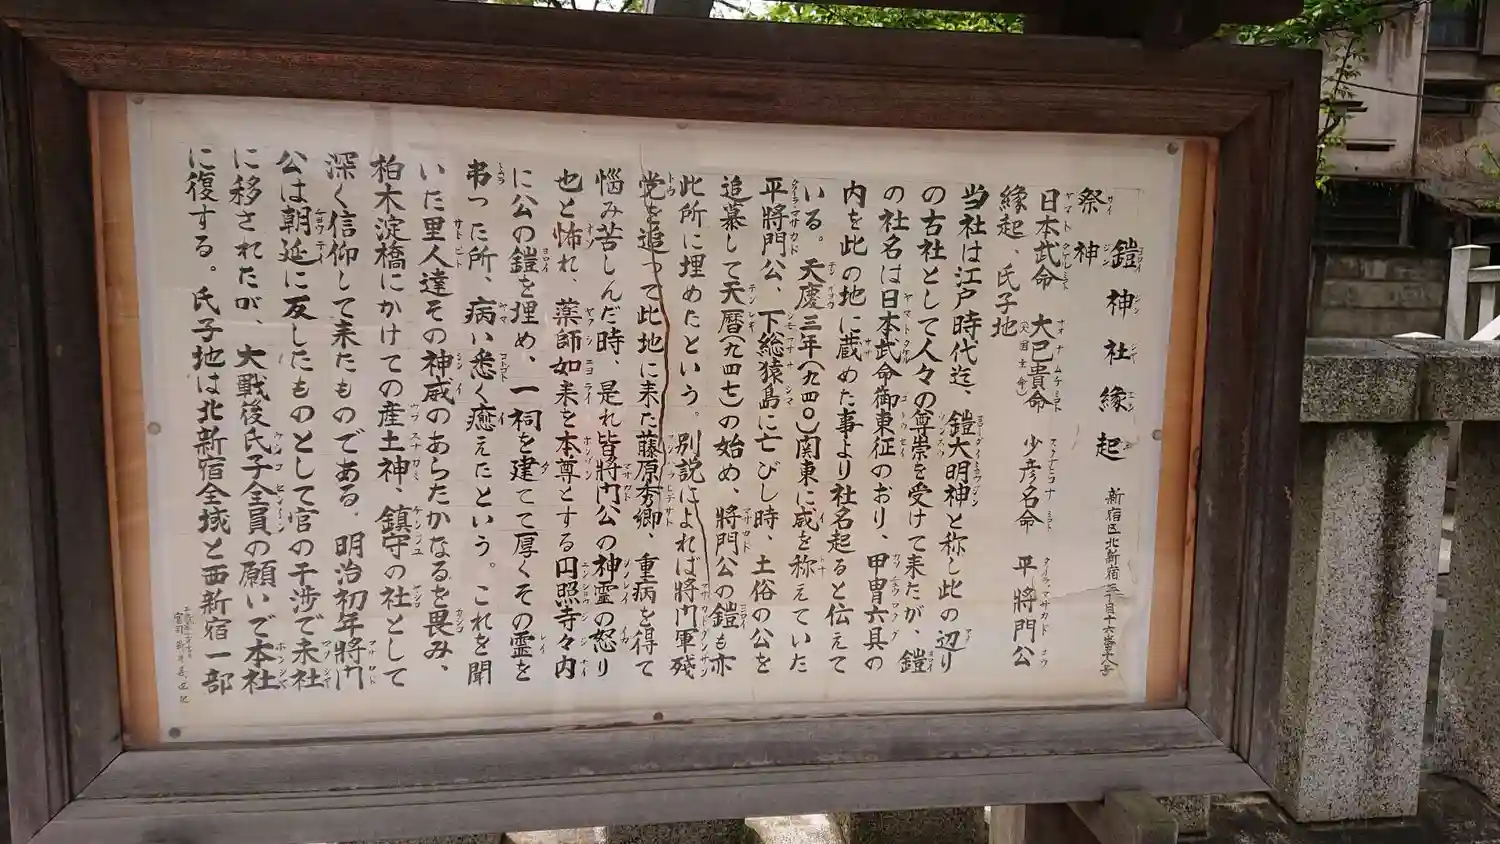 鎧神社縁起
新宿区北新宿三丁目十六番十八号
祭神
日本武命　大己貴命　少彦名命　平将門公
縁起、氏子地
当社は江戸時代迄、鎧大明神と称し此の辺り
の古社として人々の尊崇を受けて来たが、鎧
の社名は日本武命御東征のおり、甲冑六具の
内を此の地に蔵めた事より社名起ると伝えて
いる。天慶三年(九四〇)関東に威を称えていた
平將門公、下総猿島に亡びし時、土俗の公を
追慕して天暦(九四七)の始め、将門公の鎧も亦
此所に埋めたという。別説によれば将門軍残
党を追って此地に来た藤原秀郷、重病を得て
悩み苦しんだ時、是れ皆將門公の神霊の怒り
也と怖れ、薬師如来を本尊とする円照寺々内
に公の鎧を埋め、一祠を建てて厚くその霊を
弔った所、病い悉く癒えたという。これを聞
いた里人達その神威のあらたかなるを畏み、
柏木淀橋にかけての産土神、鎮守の社として
深く信仰して来たものである。明治初年將門
公は朝廷に反したものとして官の干渉で末社
に移されたが、大戦後氏子全員の願いで本社
に復する。氏子地は北新宿全域と西新宿一部